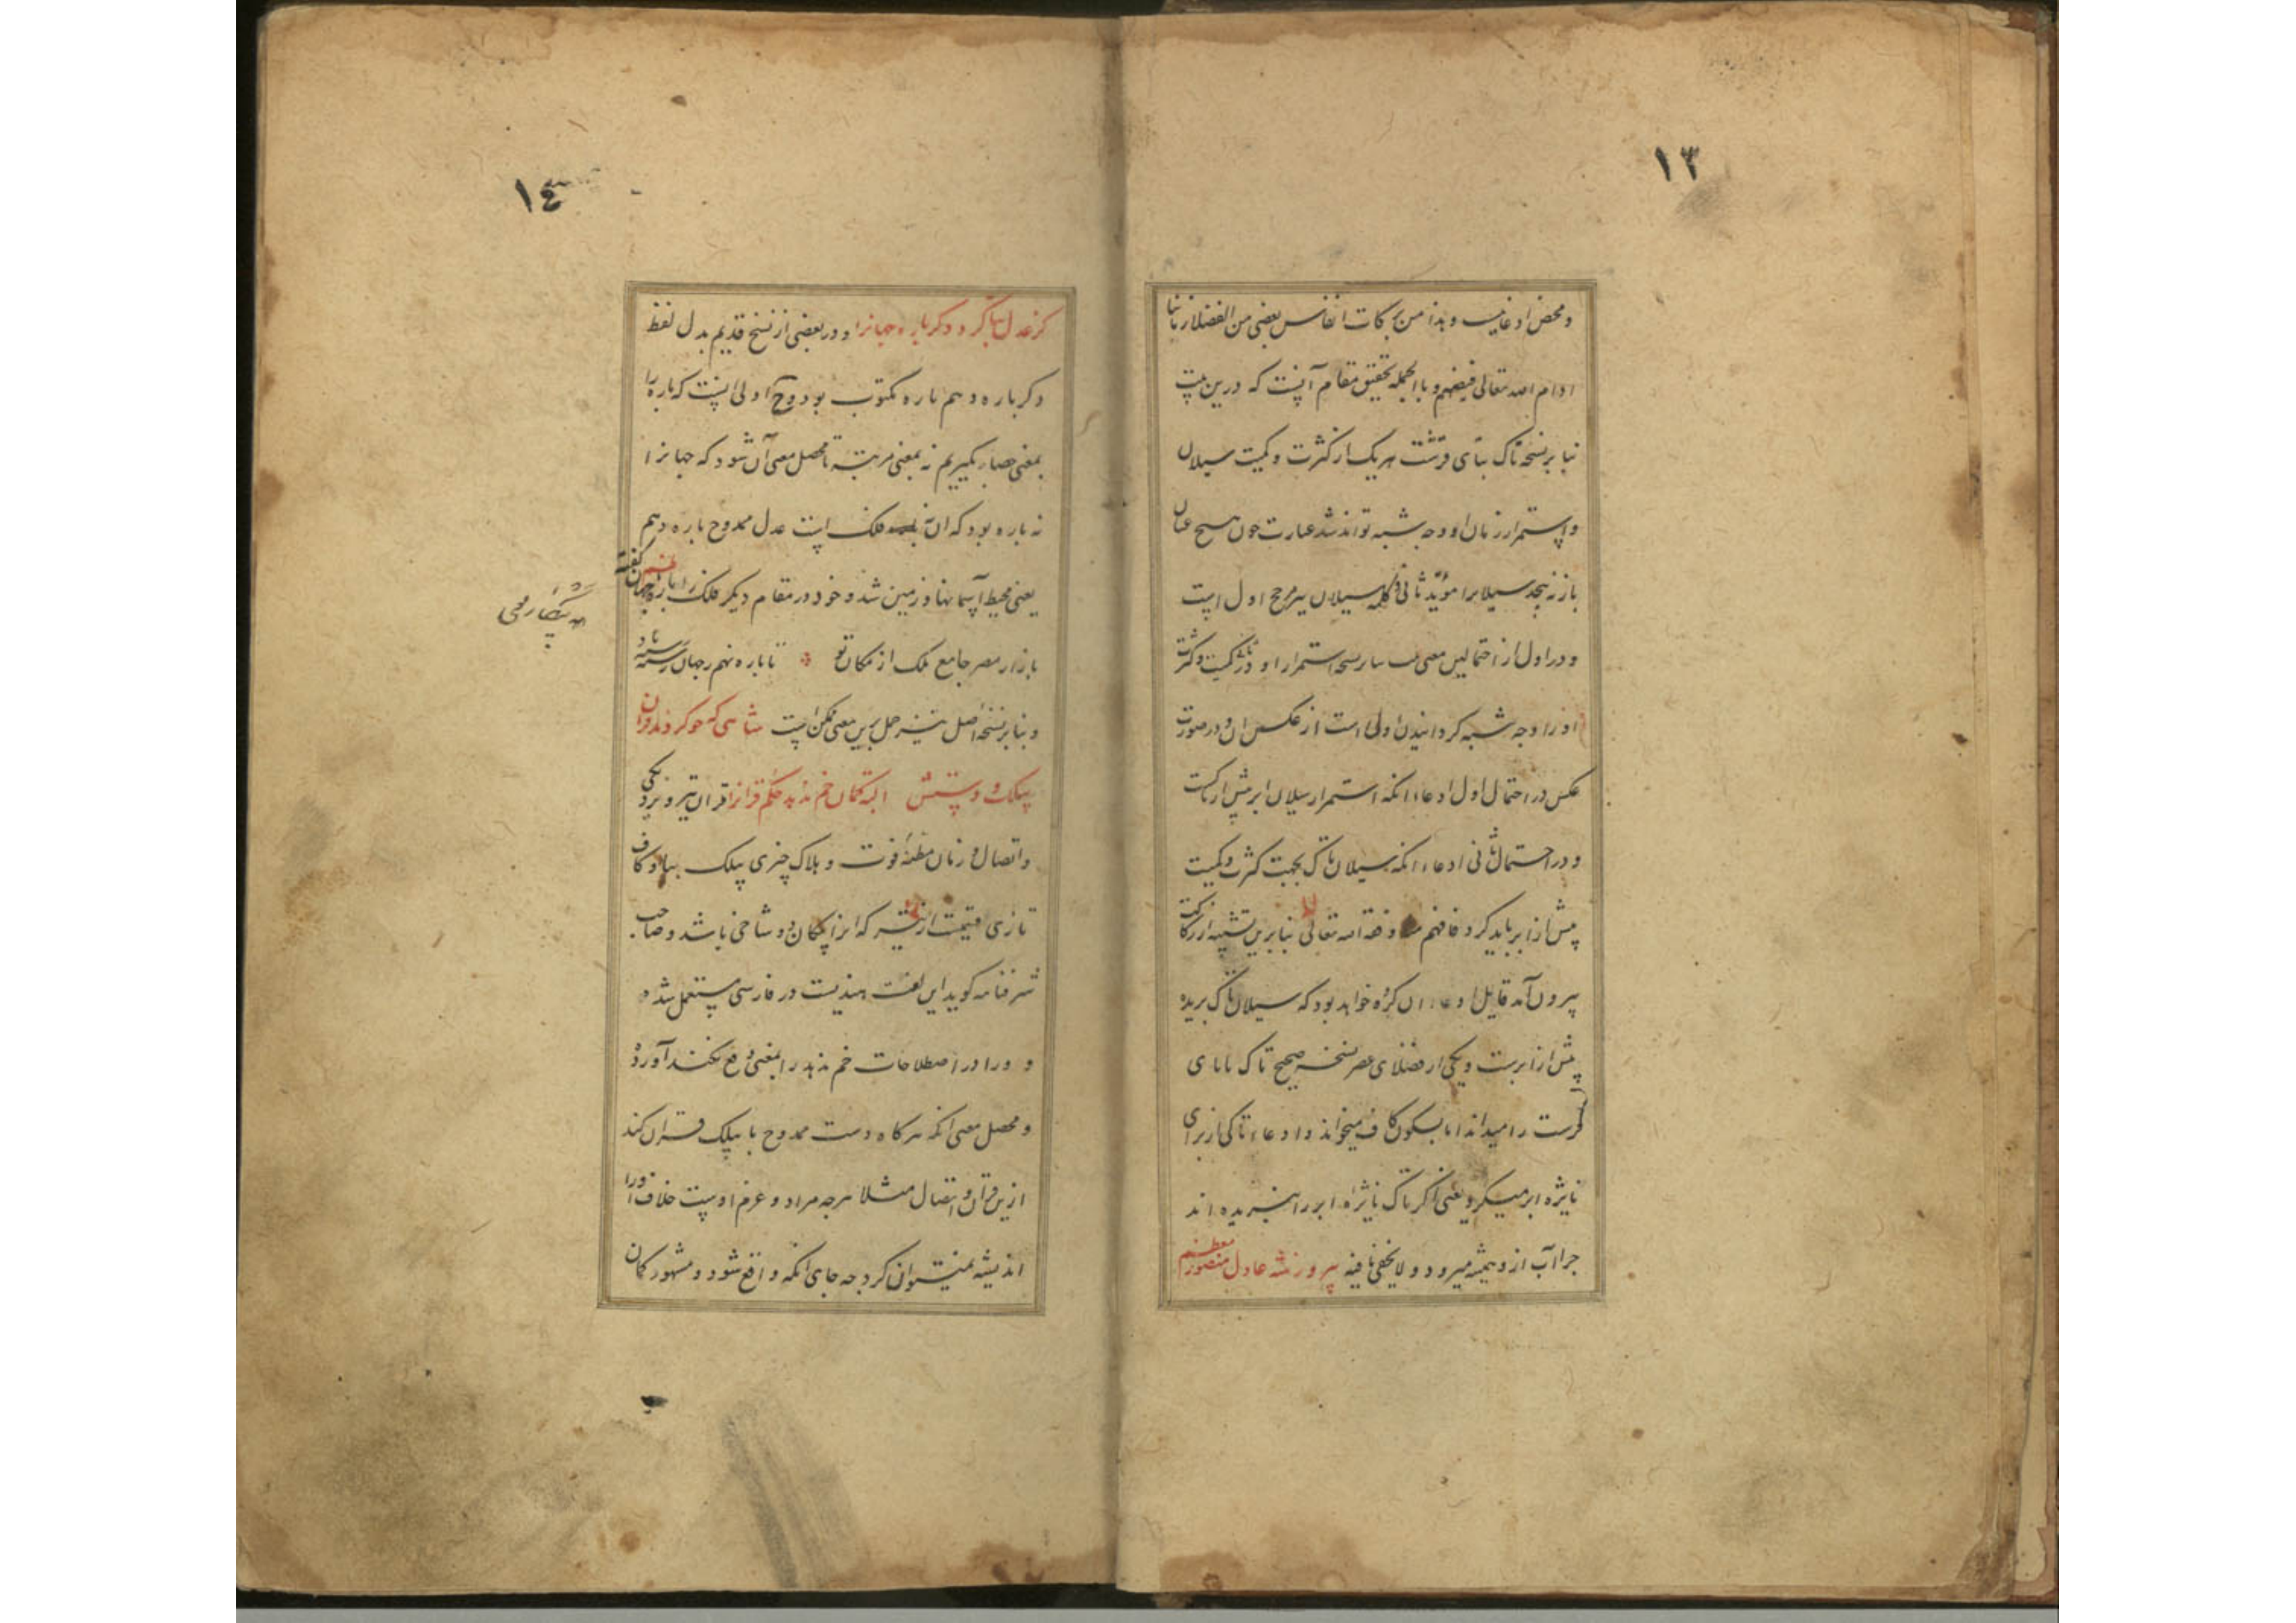 ١٣
و محض ادعاست و هذا من برکات انفاس بعضی من الفضلاء زماننا
ادام الله تعالی فیضهم و بالجمله تحقیق مقام آنست که درین بیت
بنا بر نسخه تاک بتای قرشت هر یک از کثرت و کمیت سیلان
و استمرار زمان او وجه شبه تواند شد عبارت چون هیچ عنان
باز نه پیچد سیلان را مؤید ثانی و کلمه سیلان مرجح اول است
و در اول از احتمالین معنی استمرار او و در کمیت و کثرت
او را وجه شبه گردانیدن اولی است از عکس ان و در صورت
عکس در احتمال اول ادعاء انکه استمرار سیلان ابر بیش از تاکست
و در احتمال ثانی ادعاء انکه سیلان تاک بجهت کثرت و کمیت
بیش از ابر باید کرد فافهم وفقه الله تعالی بنا برین تشبیه از رکاکت
بیرون آمد قایل ادعاء ان کرده خواهد بود که سیلان تاک بریده
بیش از ابرست و یکی از فضلای عصر نسخه صحیح تاک با تای
قرشت را میداند اما بسکون کاف میخواند و ادعاء تاکی از برای
نایژه ابر میکرد یعنی اگر تاک نایژه ابر را نبریده اند
چرا آب ازو همیشه میرود و لا یخفی ما فیه پیروز شه عادل منصور معظم
١٤
کز عدل بنا کرد دگر باره جهانرا و در بعضی از نسخ قدیم بدل لفظ
دگر باره دهم باره مکتوب بود و ح اولی اینست که باره را
بمعنی حصار بگیریم نه بمعنی مرتبه تا محصل معنی آن شود که جهانرا
نه باره بود که ان نه فلک است عدل ممدوح باره دهم
یعنی محیط آسمانها و زمین شد و خود در مقام دیگر فلک را باره جهان گفته
بازار مصر جامع ملک از مکان تو تا باره نهم ز جهان رسته باد
و بنا بر نسخه اصل نیز حمل برین معنی ممکن است شاهی که چو کردند قران
بیلک و دستش البته کمان خم ندهد حکم قرانرا قران تیر و یزد یکی
و اتصال و زمان مظنه فوت و هلاک چیزی بیلک بیا و کاف
تازی قیمست از تیر که انرا پیکان دو شاخی باشد و صاحب
شرفنامه کوید این لغت هندیست در فارسی مستعمل شده
و در اصطلاحات خم ندهد را بمعنی دفع نکند آورده
و محصل معنی انکه هرگاه دست ممدوح با بیلک قران کند
ازین قران و اتصال مثلا هرچه مراد و غرض اوست خلاف او را
اندیشه نمیتوان کرد چه جای انکه واقع شود و مشهور کمان